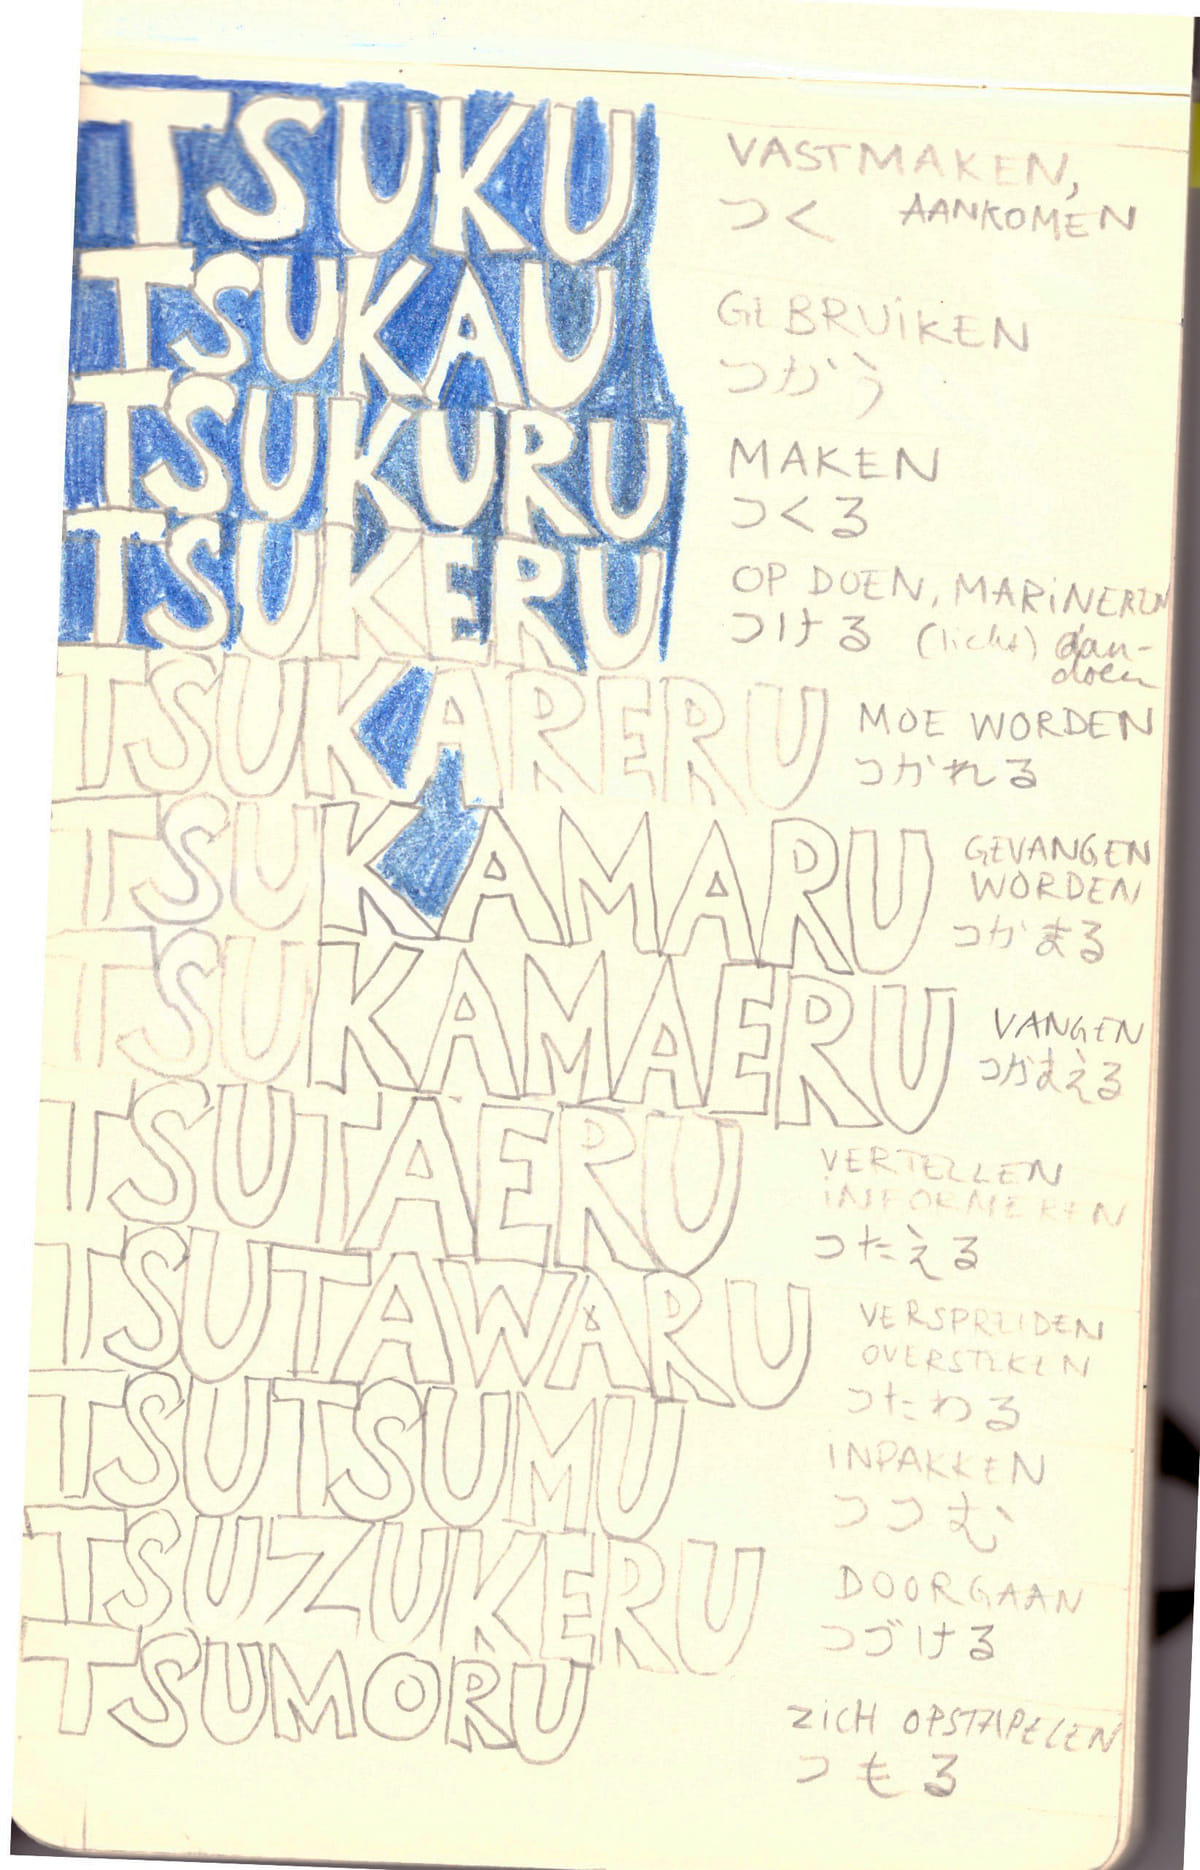 TSUKU
VASTMAKEN,
つく AANKOMEN
TSUKAU
GEBRUiKEN
つかう
TSUKURU
MAKEN
つくる
TSUKERU
OP DOEN, MARiNEREN
つける (licht) aan-
doen
TSUKARERU
MOE WORDEN
つかれる
TSUKAMARU
GEVANGEN
WORDEN
つかまる
TSUKAMAERU
VANGEN
つかまえる
TSUTAERU
VERTELLEN
iNFORMEREN
つたえる
TSUTAWARU
VERSPREIDEN
OVERSTEKEN
つたわる
TSUTSUMU
iNPAKKEN
つつむ
TSUZUKERU
DOORGAAN
つづける
TSUMORU
ZiCH OPSTAPELEN
つもる